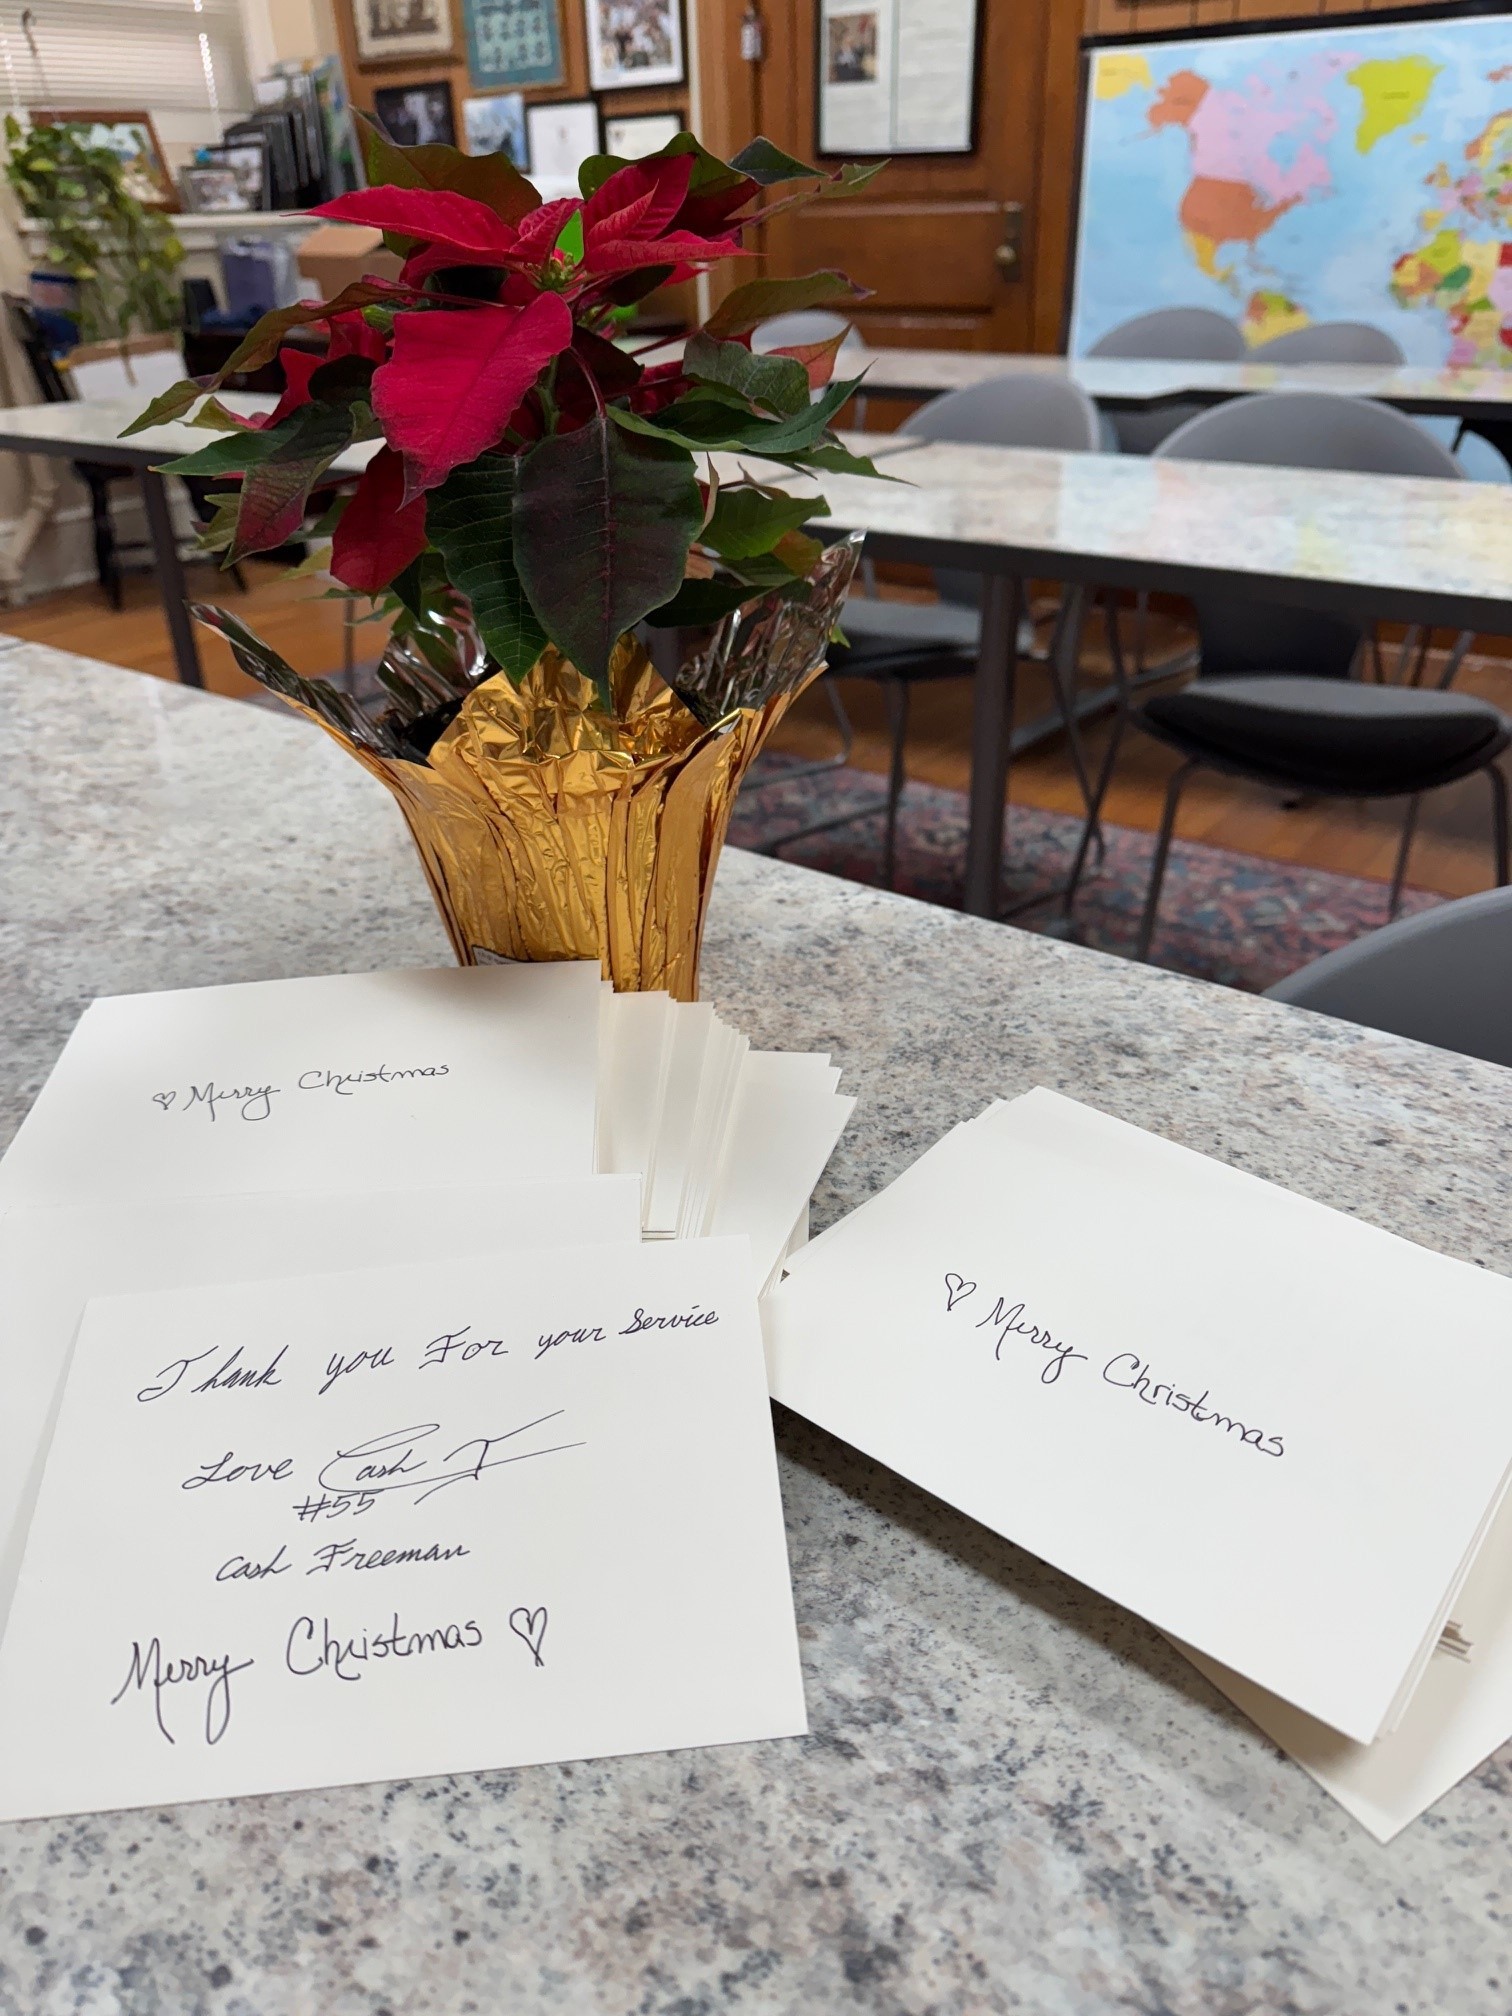 ♡ Merry Christmas
Thank you For your Service
Love Cash F
#55
Cash Freeman
Merry Christmas ♡
♡ Merry Christmas